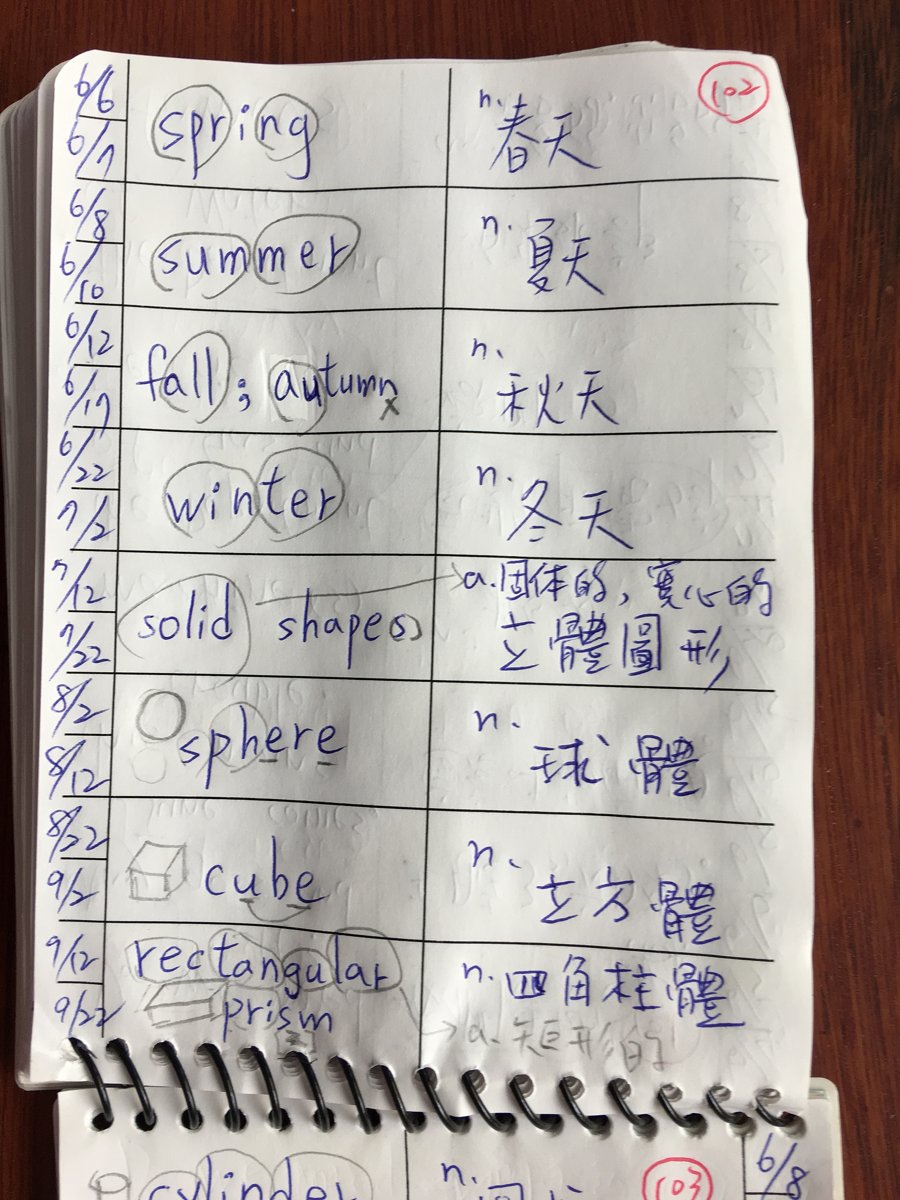 102
6/6
6/7
spring
n. 春天
6/8
6/10
summer
n. 夏天
6/12
6/17
fall; autumn
x
n. 秋天
6/22
7/2
winter
n. 冬天
7/12
7/22
solid shape(s)
a. 固体的, 實心的
立體圖形
8/2
8/12
sphere
n. 球體
8/22
9/2
cube
n. 立方體
9/12
9/22
rectangular
prism
n. 四角柱體
a. 矩形的
cylinder
n.
103
6/8